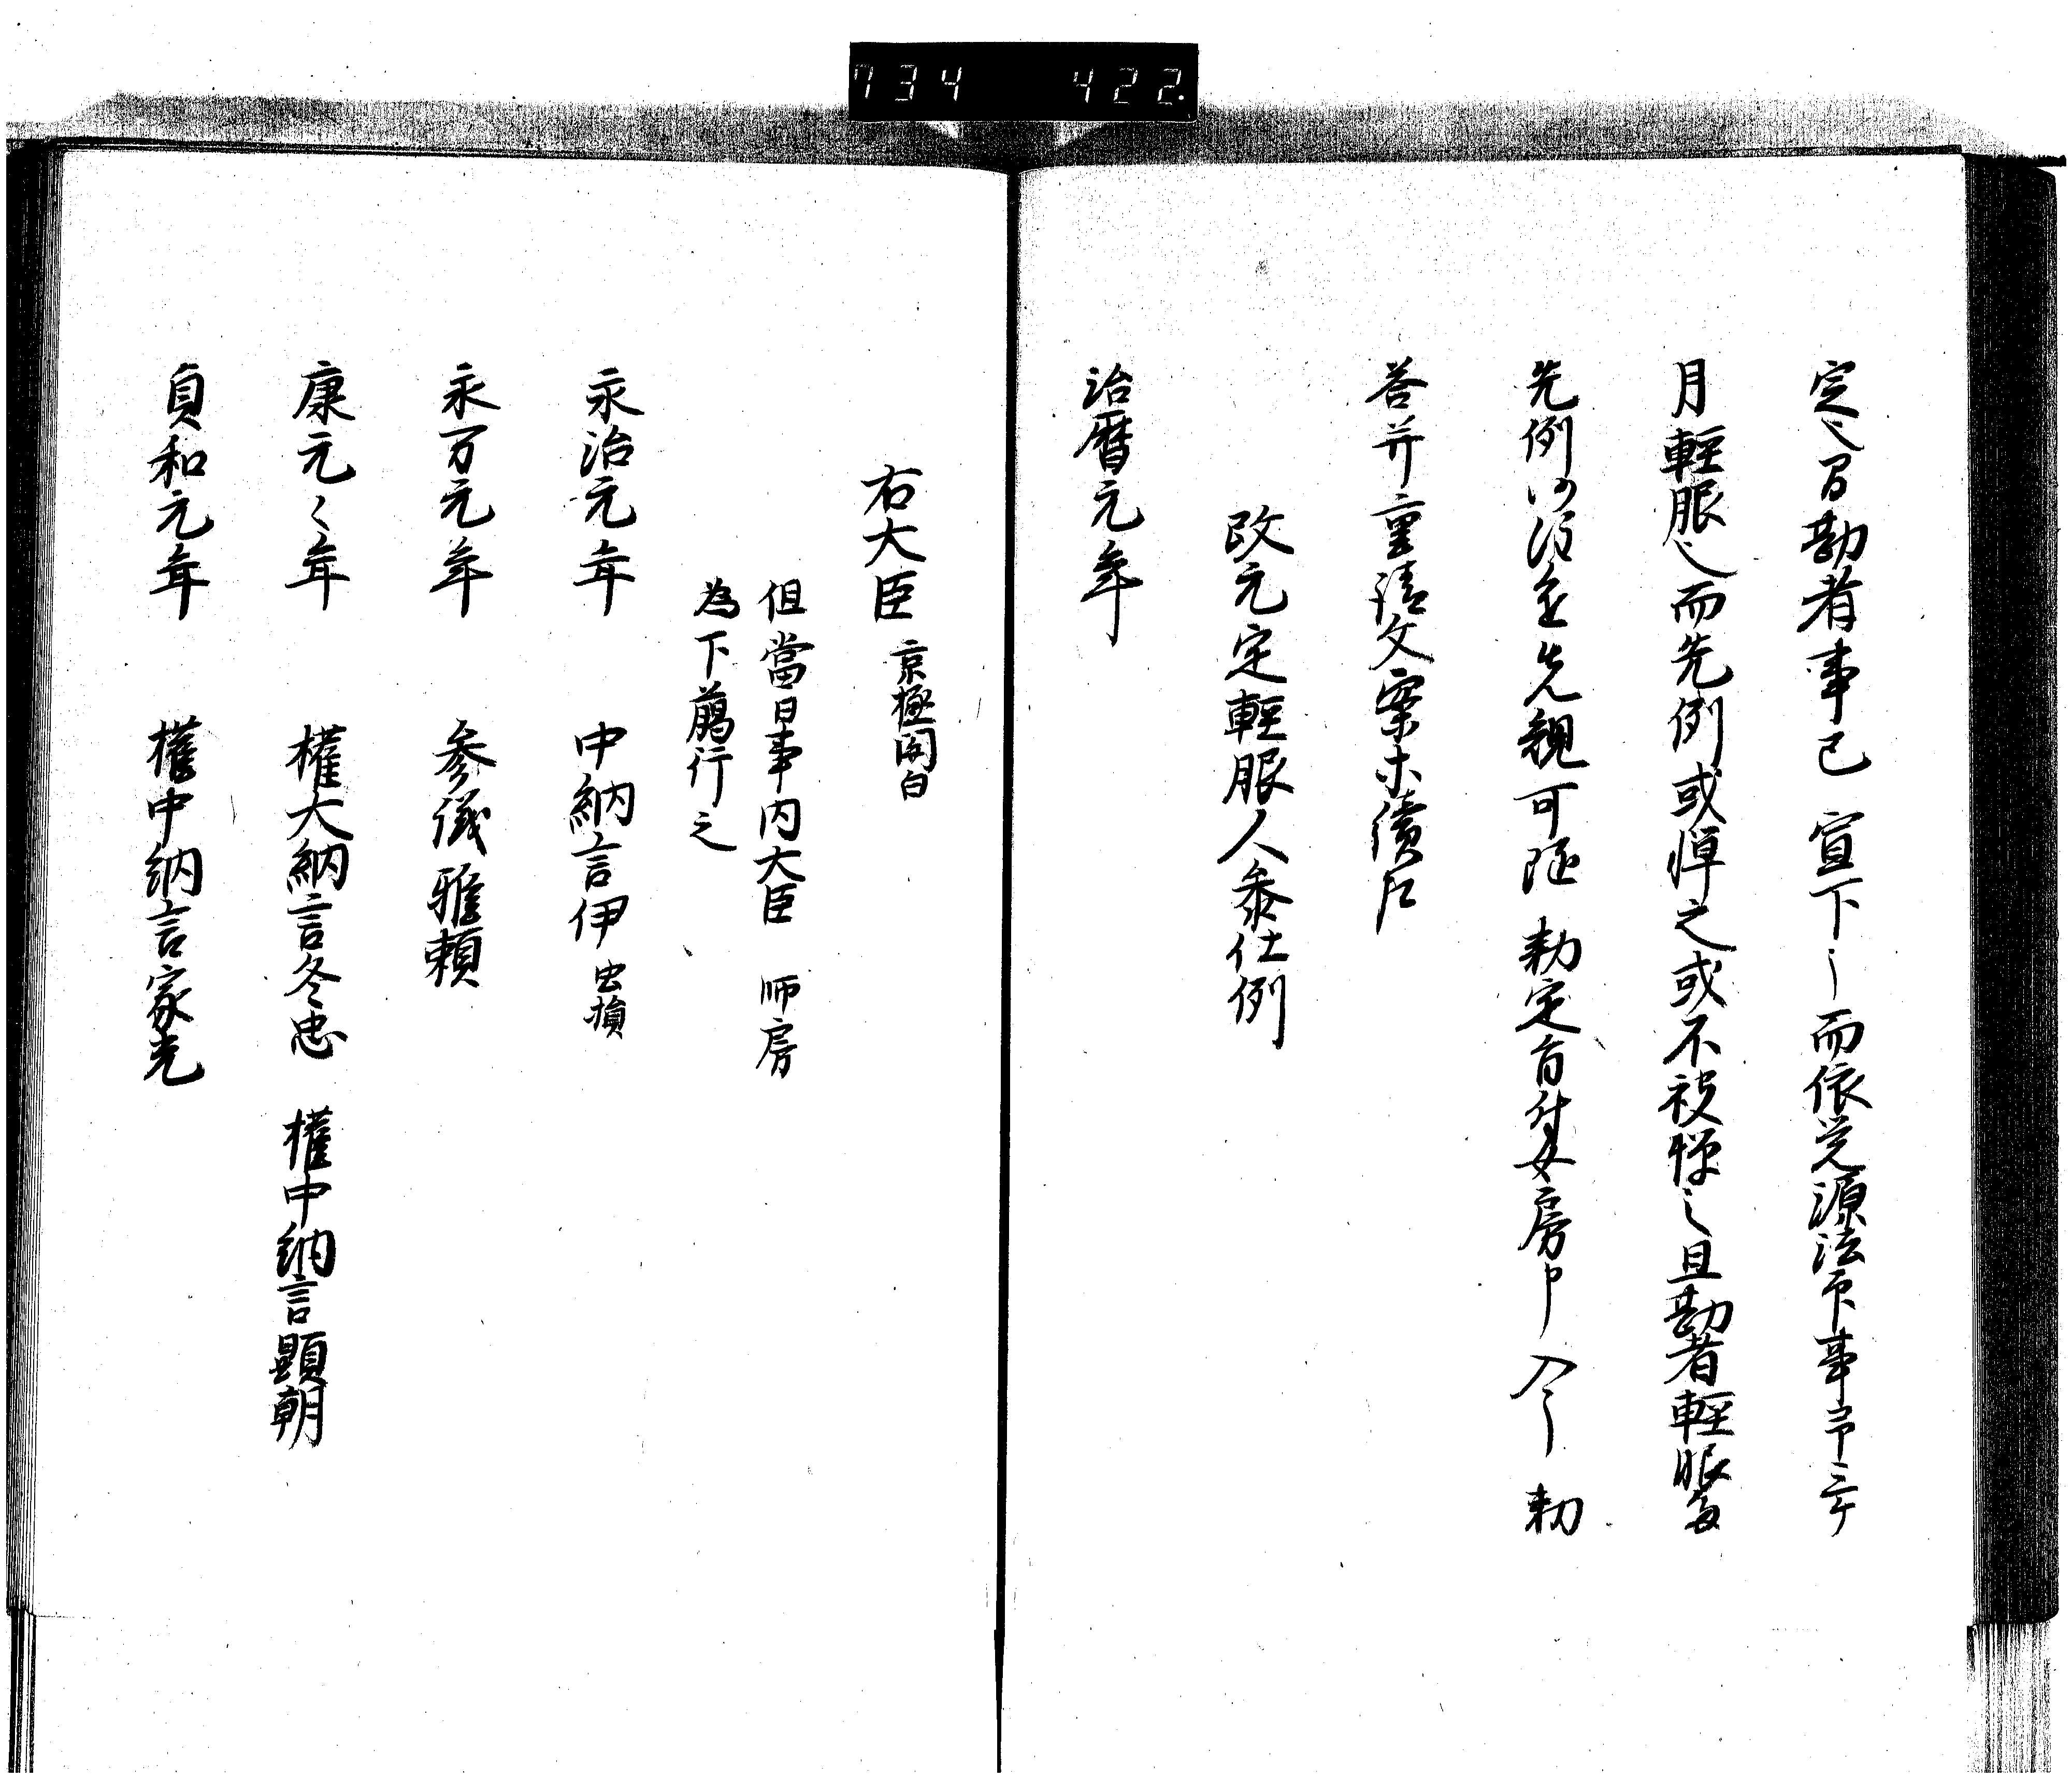 734 422.
定之召勘者事已宣下之而依覚源法印事弔三ケ
月軽服之而先例或憚之或不被憚之且勘者軽服
先例可随勅定旨付女房申入之勅
答并重請文案等続左
改元定軽服人参仕例
治暦元年
右大臣 京極関白
但當日事内大臣 師房
為下﨟行之
永治元年 中納言伊 虫損
永万元年 参議雅頼
康元々年 權大納言冬忠 權中納言顕朝
貞和元年 權中納言家光